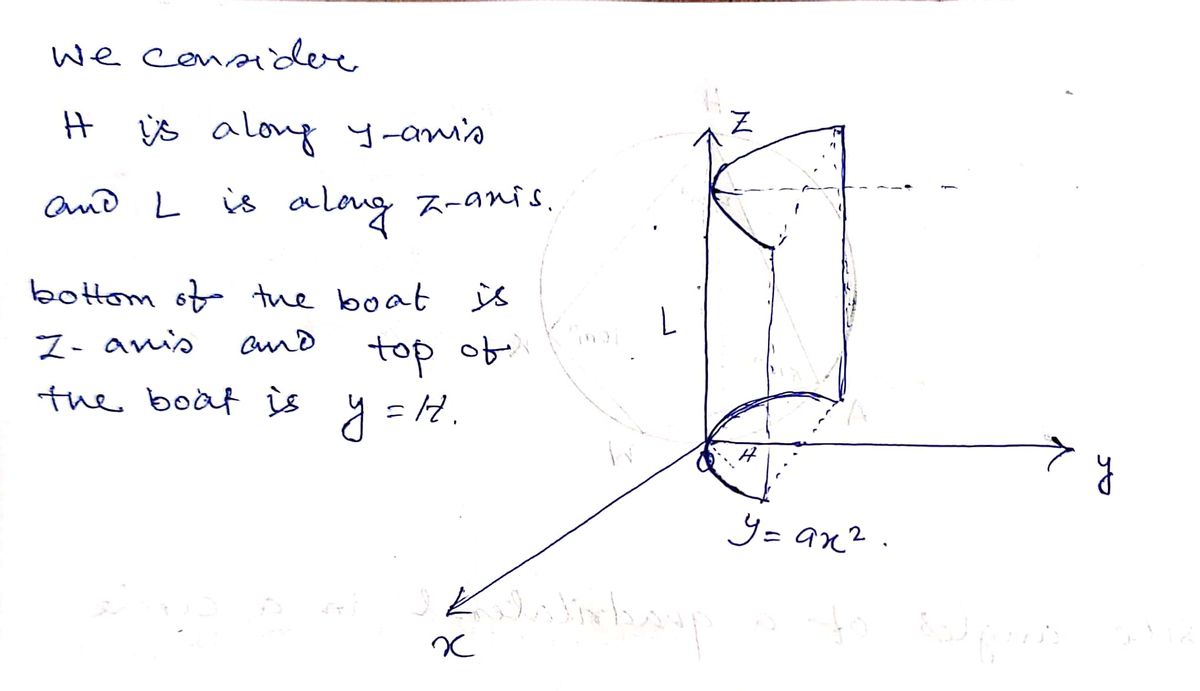 We consider
H is along y-axis
and L is along z-axis.
bottom of the boat is
Z-axis and top of
the boat is y = H.
Z
L
H
O
y
y = ax².
x